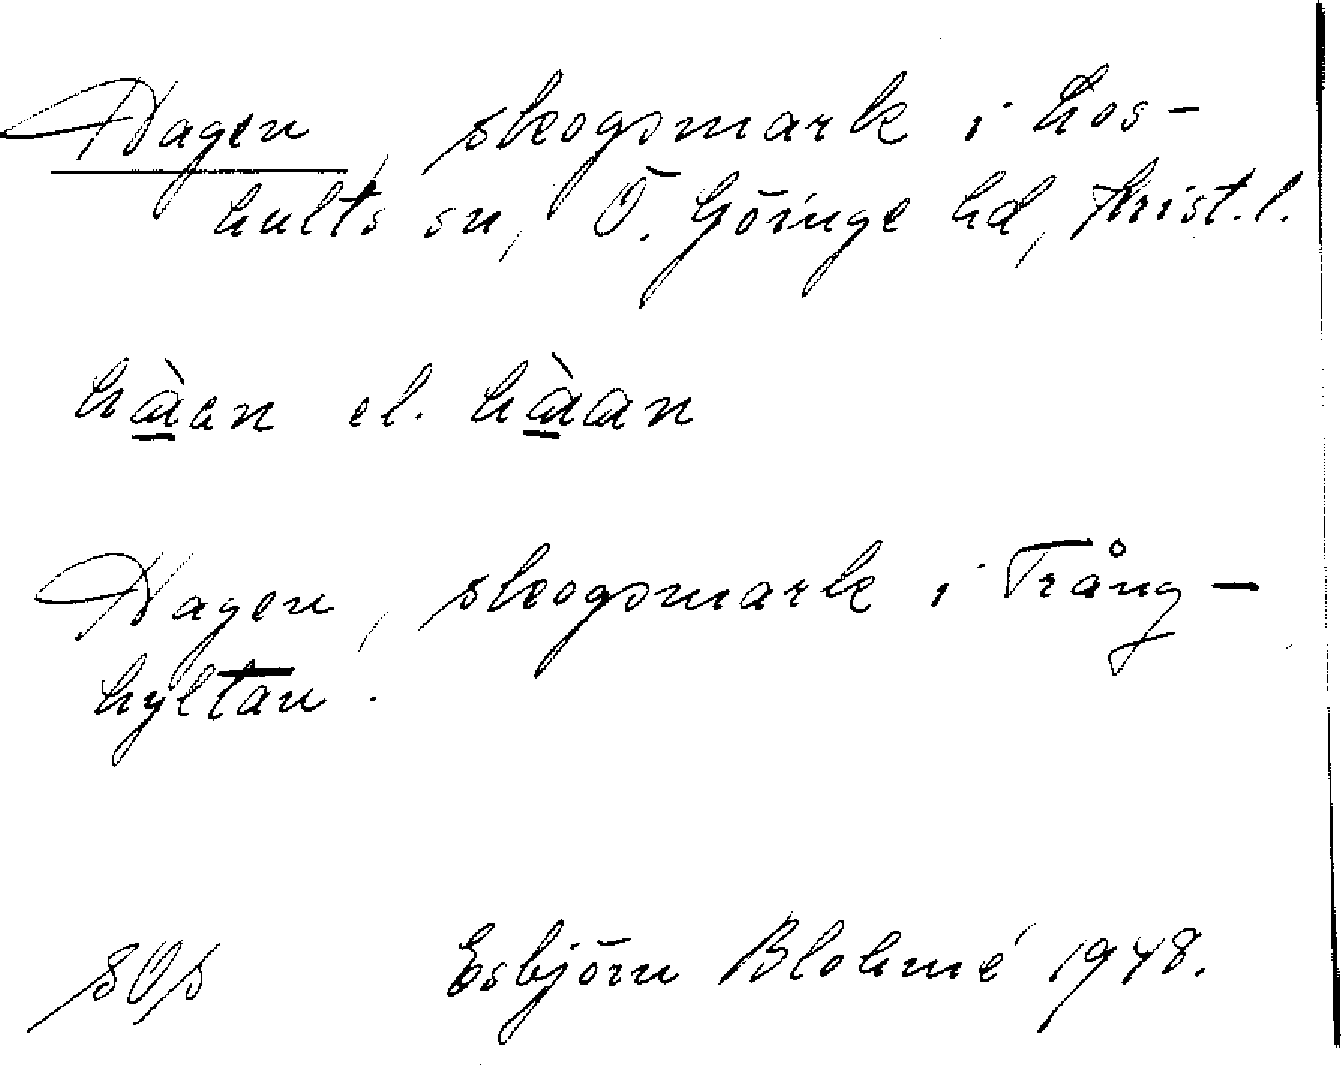 Hagen, skogsmark i Los-
hults sn, Ö. Göinge hd, Krist. l.
hàen el. hàan
Hagen, skogsmark i Trång-
hyltan.
Esbjörn Blohmé 1948.